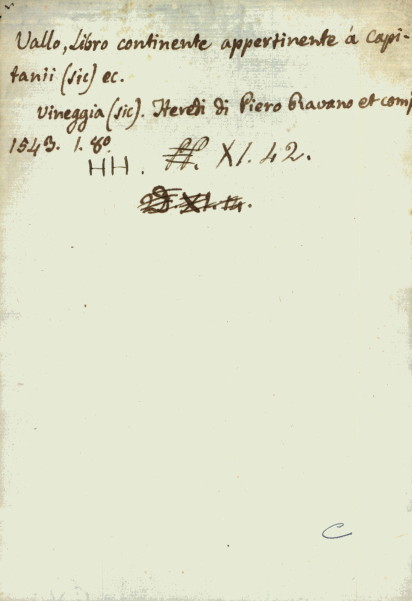 Vallo, Libro continente appertinente á Capi-
tanii (sic) ec.
Vineggia (sic). Heredi di Piero Ravano et comp
1543. 1. 8º.
HH. XI. 42.
C